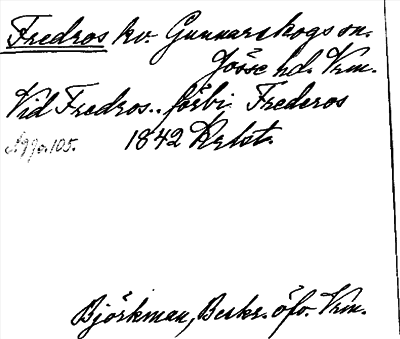 Fredros kv. Gunnarskogs sn.
Jösse hd. Vrm.
Vid Fredros.. förbi Frederos
1842 Krlst.
105.
Björkman, Beskr. öfv. Vrm.